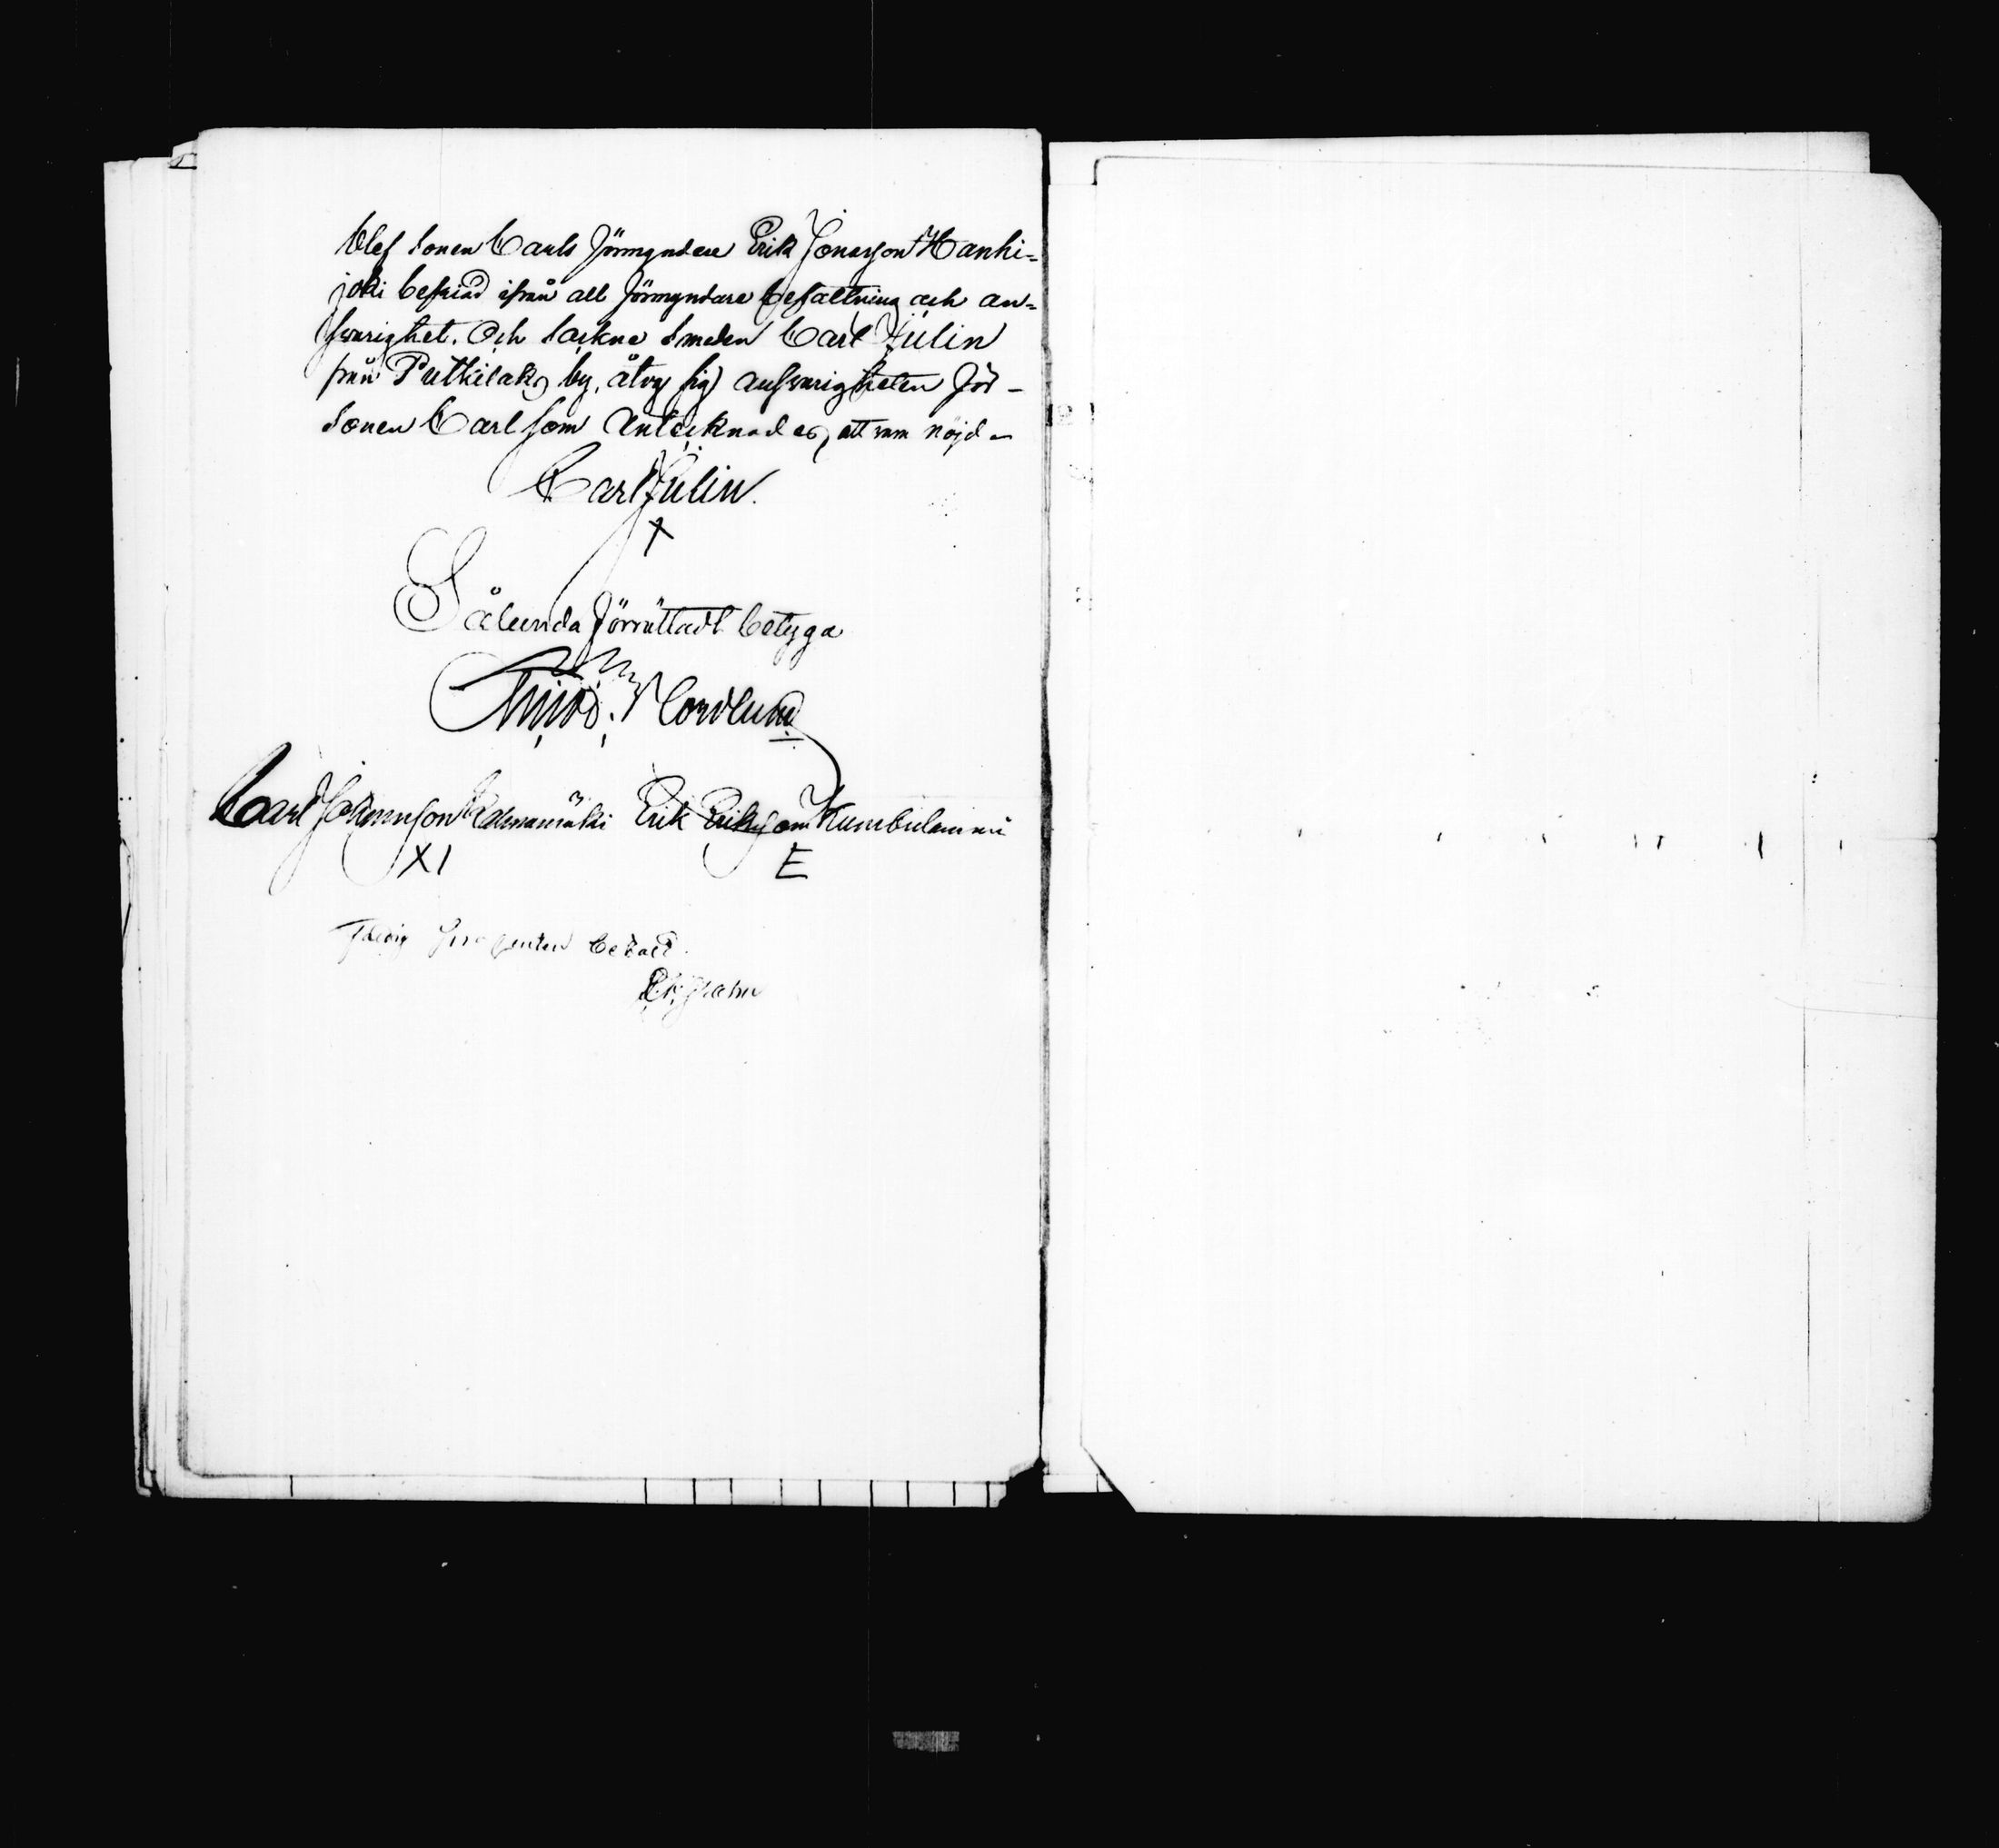 blef Sonen Carls Förmyndare Erik Jonasson Hanhi-
joki befriad ifrån all förmyndare befattning och an-
svarighet. Och Sockne Smeden Carl Julin
från Putkilaks by, åtog sig ansvarigheten för
Sonen Carl som Antecknades, att vara nöjd
Carl Julin.
X
Sålunda förrättadt betyga
Nordlund
Carl Johansson Erik Eriksson
XI E
Fattig Procenten betalt.